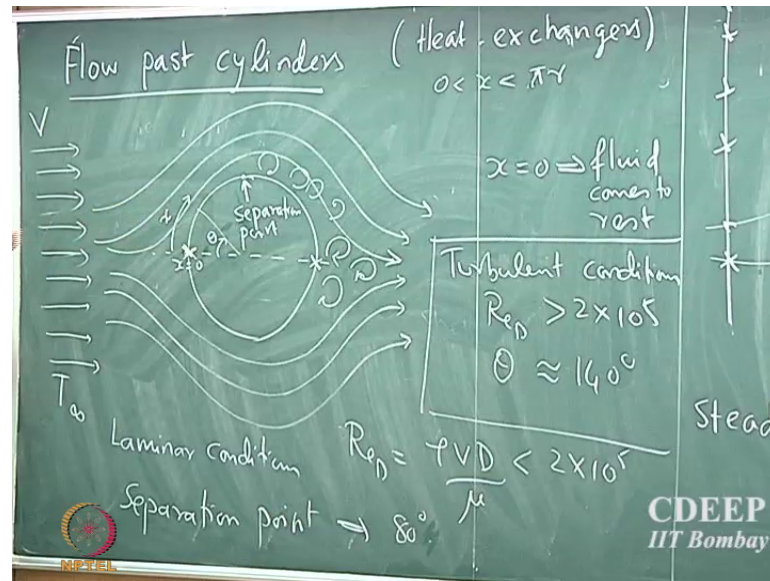 Flow past cylinders
(Heat-exchangers)
0 < x < πr
V
x = 0 ⇒ fluid
comes to
rest
separation
point
x
θ
x=0
Turbulent condition
Re_D > 2×10⁵
θ ≈ 140°
T∞
Laminar condition
Re_D = ρVD/μ < 2×10⁵
Separation point → 80°
Stead
CDEEP
IIT Bombay
NPTEL